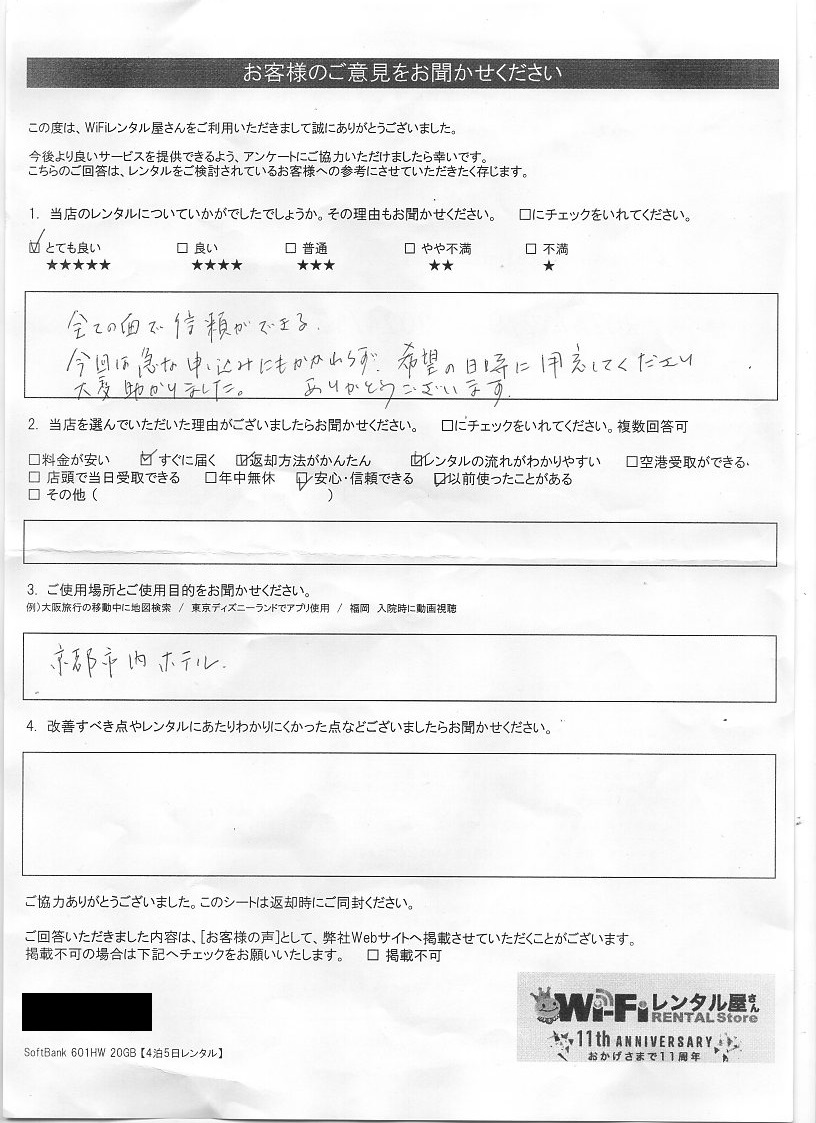 お客様のご意見をお聞かせください
この度は、WiFiレンタル屋さんをご利用いただきまして誠にありがとうございました。
今後より良いサービスを提供できるよう、アンケートにご協力いただけましたら幸いです。
こちらのご回答は、レンタルをご検討されているお客様への参考にさせていただきたく存じます。
1. 当店のレンタルについていかがでしたでしょうか。その理由もお聞かせください。 □にチェックをいれてください。
☑ とても良い □ 良い □ 普通 □ やや不満 □ 不満
★★★★★ ★★★★ ★★★ ★★ ★
全ての面で信頼ができる.
今回は急な申し込みにもかかわらず、希望の日時に用意してくださり
大変助かりました。 ありがとうございます.
2. 当店を選んでいただいた理由がございましたらお聞かせください。 □にチェックをいれてください。複数回答可
□料金が安い ☑ すぐに届く ☑返却方法がかんたん ☑レンタルの流れがわかりやすい □空港受取ができる、
□ 店頭で当日受取できる □年中無休 ☑安心・信頼できる ☑以前使ったことがある
□ その他 ( )
3. ご使用場所とご使用目的をお聞かせください。
例)大阪旅行の移動中に地図検索 / 東京ディズニーランドでアプリ使用 / 福岡 入院時に動画視聴
京都市内ホテル.
4. 改善すべき点やレンタルにあたりわかりにくかった点などございましたらお聞かせください。
ご協力ありがとうございました。このシートは返却時にご同封ください。
ご回答いただきました内容は、[お客様の声]として、弊社Webサイトへ掲載させていただくことがございます。
掲載不可の場合は下記へチェックをお願いいたします。 □ 掲載不可
Wi-Fiレンタル屋さん
RENTAL Store
11th ANNIVERSARY
おかげさまで11周年
SoftBank 601HW 20GB【4泊5日レンタル】